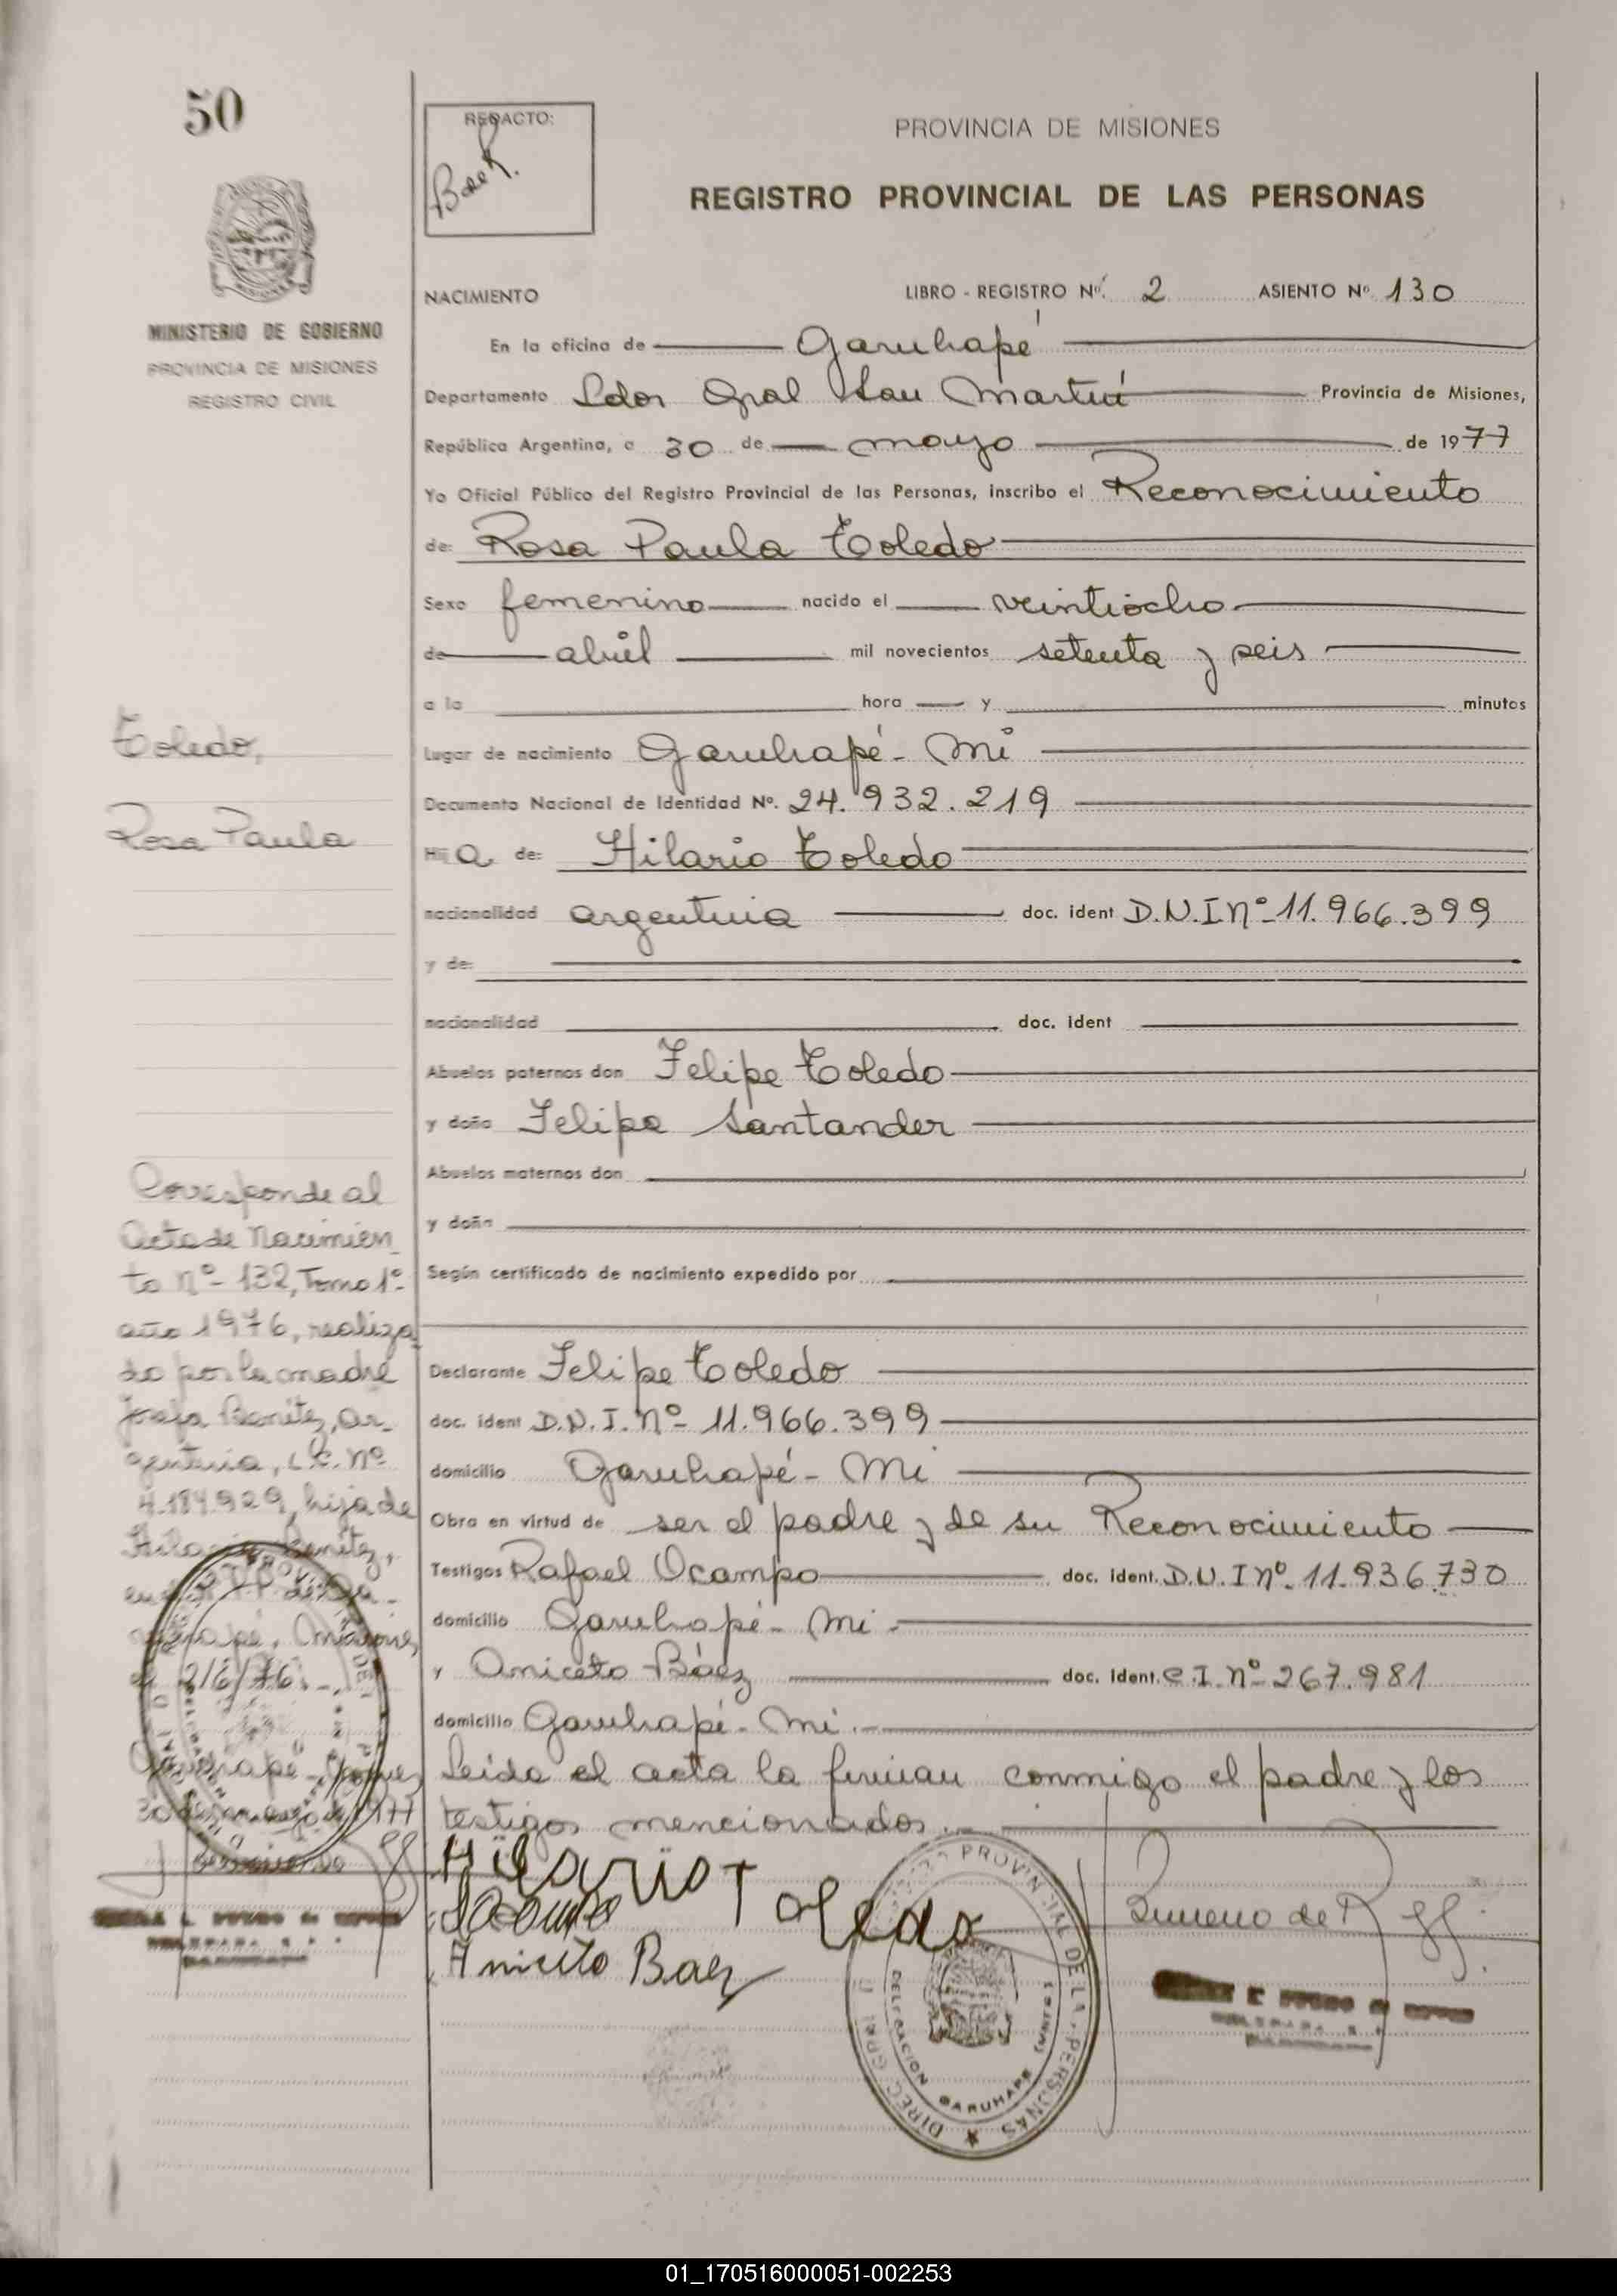 50
REDACTO:
Baez.
PROVINCIA DE MISIONES
REGISTRO PROVINCIAL DE LAS PERSONAS
MINISTERIO DE GOBIERNO
PROVINCIA DE MISIONES
REGISTRO CIVIL
NACIMIENTO LIBRO - REGISTRO Nº. 2 ASIENTO Nº 130
En la oficina de Garuhapé
Departamento Ldor Gral San Martín Provincia de Misiones,
República Argentina, a 30 de mayo de 1977
Yo Oficial Público del Registro Provincial de las Personas, inscribo el Reconocimiento
de: Rosa Paula Toledo
Sexo femenino nacido el veintiocho
de abril mil novecientos setenta y seis
a la hora y minutos
Lugar de nacimiento Garuhapé - Mi
Documento Nacional de Identidad Nº. 24.932.219
Hija de: Hilario Toledo
nacionalidad argentina doc. ident D.N.I Nº 11.966.399
y de:
nacionalidad doc. ident
Abuelos paternos don Felipe Toledo
y doña Felipa Santander
Abuelos maternos don
y doña
Según certificado de nacimiento expedido por
Declarante Felipe Toledo
doc. ident D.N.I. Nº 11.966.399
domicilio Garuhapé - Mi
Obra en virtud de ser el padre y de su Reconocimiento
Testigos Rafael Ocampo doc. ident. D.N.I Nº. 11.936.730
domicilio Garuhapé - Mi -
y Aniceto Báez doc. ident. C.I. Nº 267.981
domicilio Garuhapé - Mi.-
Leida el acta la firman conmigo el padre y los
testigos mencionados.-
Hilario Toledo
Ocampo
Aniceto Baez
Toledo,
Rosa Paula
Corresponde al
Acta de Nacimien
to Nº 132, Tomo 1º
año 1976, realiza
do por la madre
Josefa Benítez, ar-
gentina, L.C. Nº
4.184.929, hija de
Hilario Benítez,
Misiones,
el 2/6/76.-
Garuhapé
30 de mayo de 1977
PROVINCIAL DE LAS PERSONAS
DIREC. GRAL
DELEGACION GARUHAPE (MNES)
01_170516000051-002253